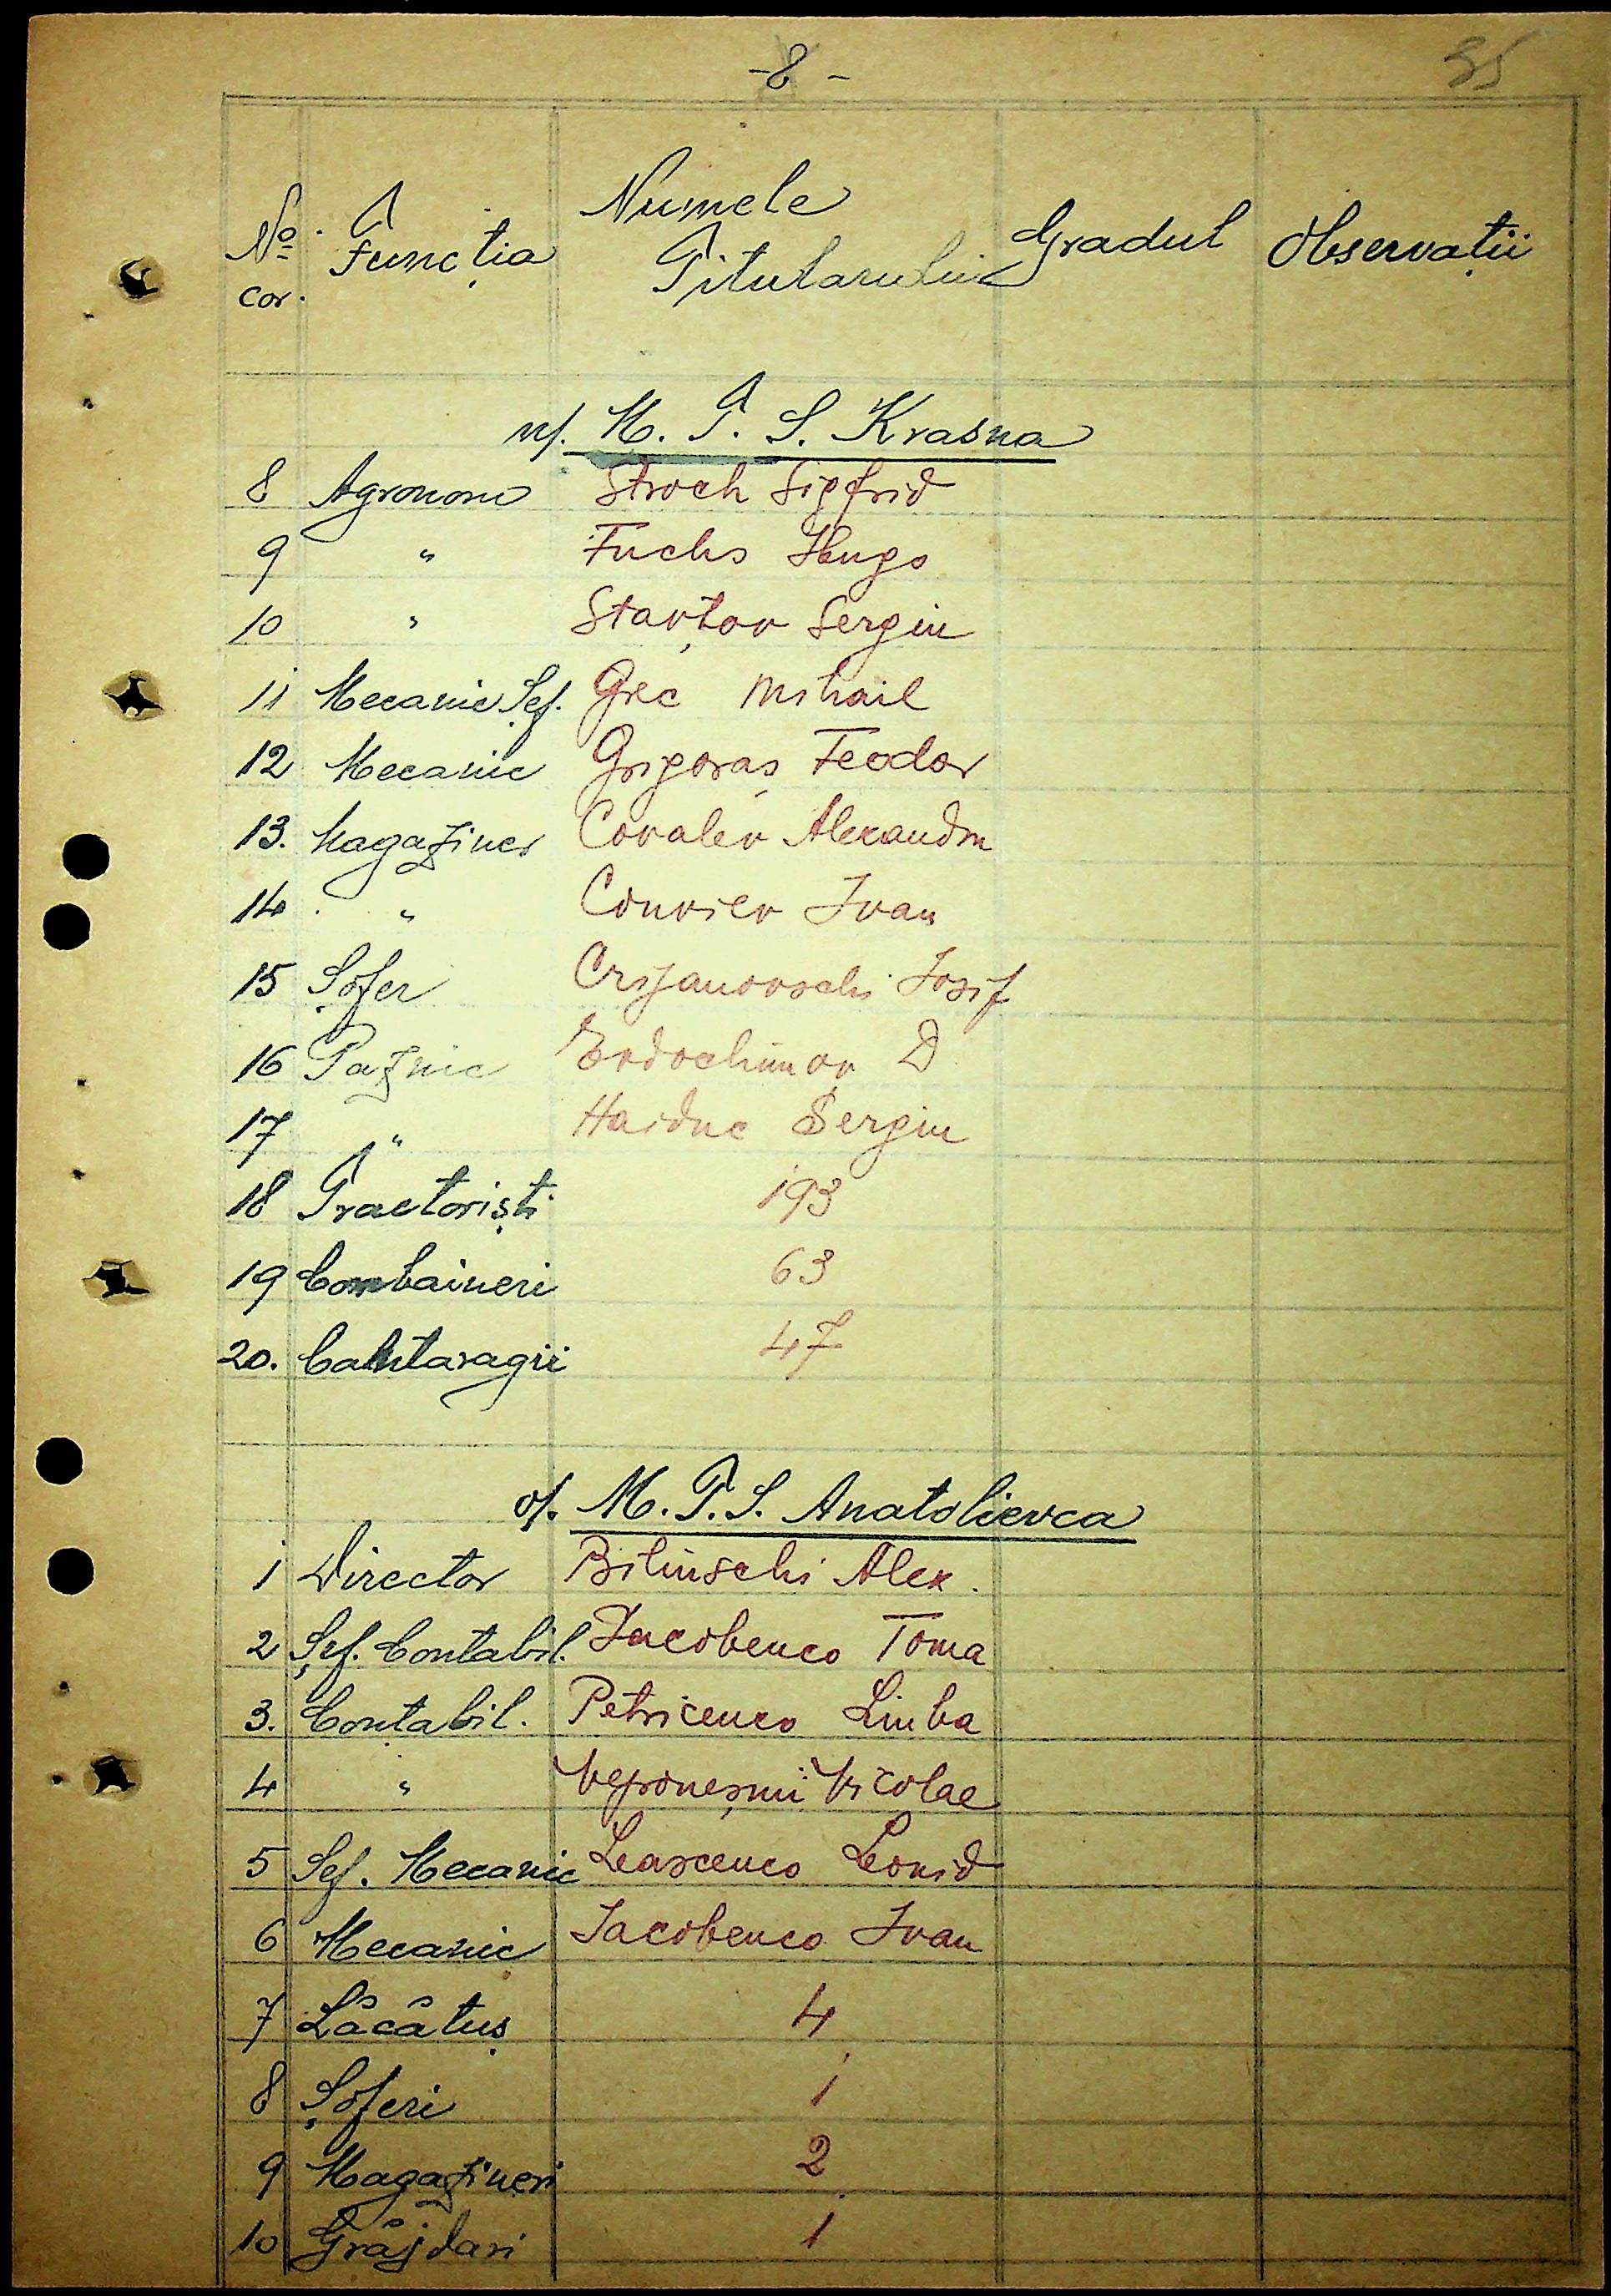 -8-
35
No cor.
Funcția
Numele Titularului
Gradul
Observații
n/. M. T. S. Krasna
8 Agronom Stroch Sigfrid
9 " Fuchs Hugo
10 " Starțov Sergiu
11 Mecanic Șef. Grec Mihail
12 Mecanic Grigoraș Feodor
13. Magaziner Covalev Alexandru
14 " Conriev Ivan
15 Șofer Crijanovschi Iosif
16 Paznic Evdochimov D
17 " Haiduc Sergiu
18 Tractoriști 193
19 Combaineri 63
20. Cantaragii 47
o/. M. T. S. Anatolievca
1 Director Bilinschi Alex.
2 Șef. Contabil. Iacobenco Toma
3. Contabil. Petricenco Liuba
4 " Nicolae
5 Șef. Mecanic Leascenco Leonid
6 Mecanic Iacobenco Ivan
7 Lăcătuș 4
8 Șoferi 1
9 Magazineri 2
10 Grăjdari 1